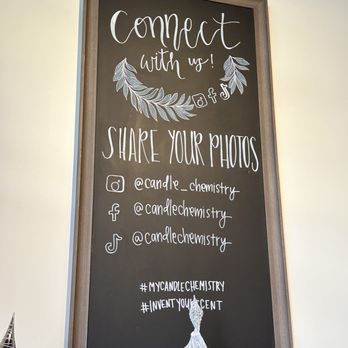 Connect
with us!
SHARE YOUR PHOTOS
@candle_chemistry
@candlechemistry
@candlechemistry
#MYCANDLECHEMISTRY
#INVENTYOURSCENT